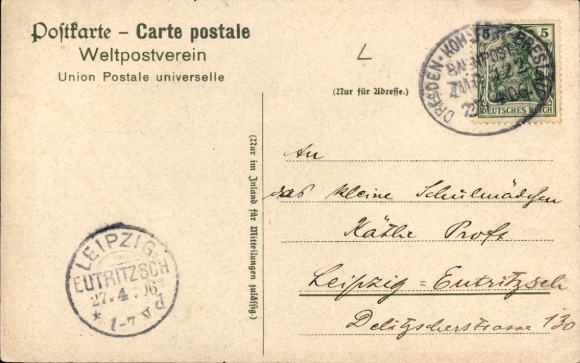 Postkarte – Carte postale
Weltpostverein
Union Postale universelle
L
(Nur für Adresse.)
DRESDEN-
BRESLAU
BAHNPOST
5 5
DEUTSCHES REICH
(Nur im Inland für Mitteilungen zulässig)
An
das kleine Schulmädchen
Käthe Proft
Leipzig=Eutritzsch
Delitzscherstrasse 130
LEIPZIG-
EUTRITZSCH
27.4.06
* 1-7